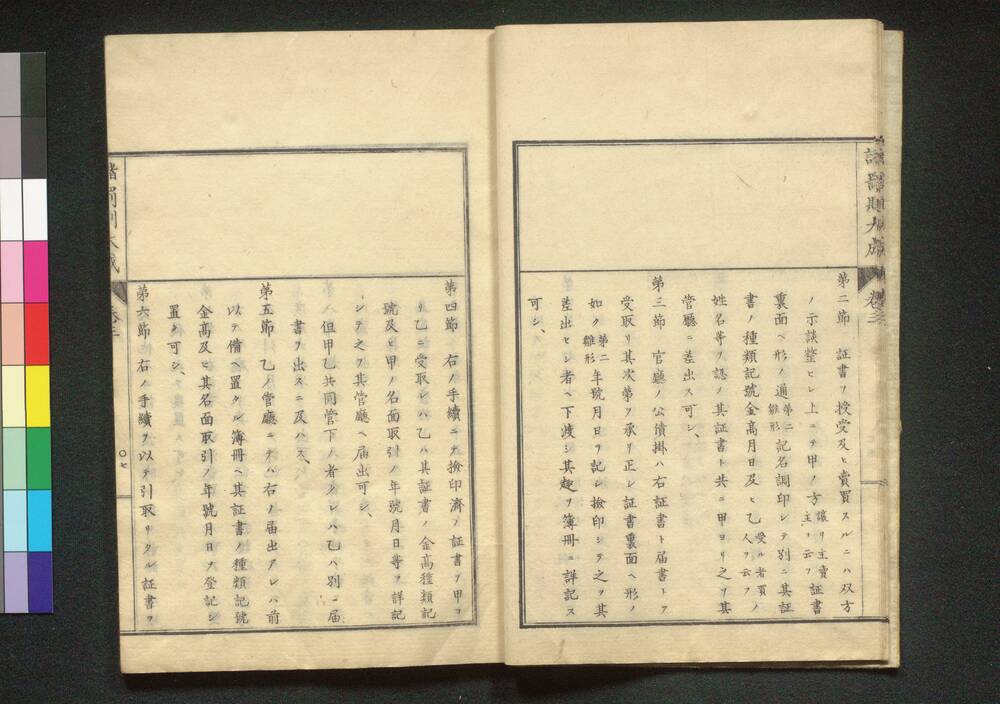 諸罰則大成
卷之三
第二節　証書ヲ授受及ヒ賣買スルニハ双方
ノ示談整ヒシ上ニテ甲ノ方讓リ主賣主ヲ云フ証書
裏面ヘ形ノ通第二雛形記名調印シテ別ニ其証
書ノ種類記號金高月日及ヒ乙受ル者買ノ人ヲ云フ
姓名等ヲ認メ其証書ト共ニ甲ヨリ之ヲ其
管廳ニ差出ス可シ、
第三節　官廳ノ公債掛ハ右証書ト届書トヲ
受取リ其次第ヲ承リ正シ証書裏面ヘ形ノ
如ク第二雛形年號月日ヲ記シ撿印シテ之ヲ其
差出セシ者ヘ下渡シ其趣ヲ簿冊ニ詳記ス
可シ、
第四節　右ノ手續ニテ撿印濟ノ証書ヲ甲ヨ
リ乙ニ受取レハ乙ハ其証書ノ金高種類記
號及ヒ甲ノ名面取引ノ年號月日等ヲ詳記
シテ之ヲ其管廳ヘ届出可シ、
但甲乙共同管下ノ者タレハ乙ハ別ニ届
書ヲ出スニ及ハス、
第五節　乙ノ管廳ニテハ右ノ届出アレハ前
以テ備ヘ置タル簿冊ヘ其証書ノ種類記號
金高及ヒ其名面取引ノ年號月日ヲ登記シ
置ク可シ、
第六節　右ノ手續ヲ以テ引取リタル証書ヲ
大成
〇七